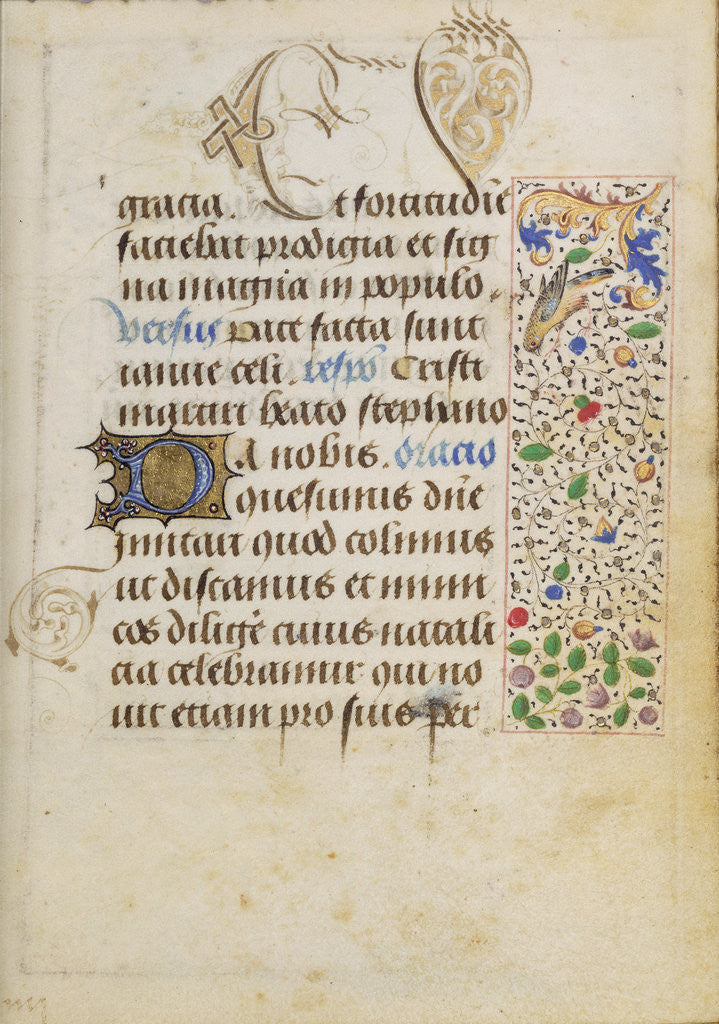 gracia. Et fortitudīe
faciebat prodigia et sig
na magna in populo.
Versus Pate facta sunt
ianue celi. respō Cristi
martari beato stephano
Da nobis. oracio
quesumus dn̄e
imitari quod colimus
ut discamus et inimi
cos diligē cuius natali
cia celebramur qui no
uit etiam pro suis per